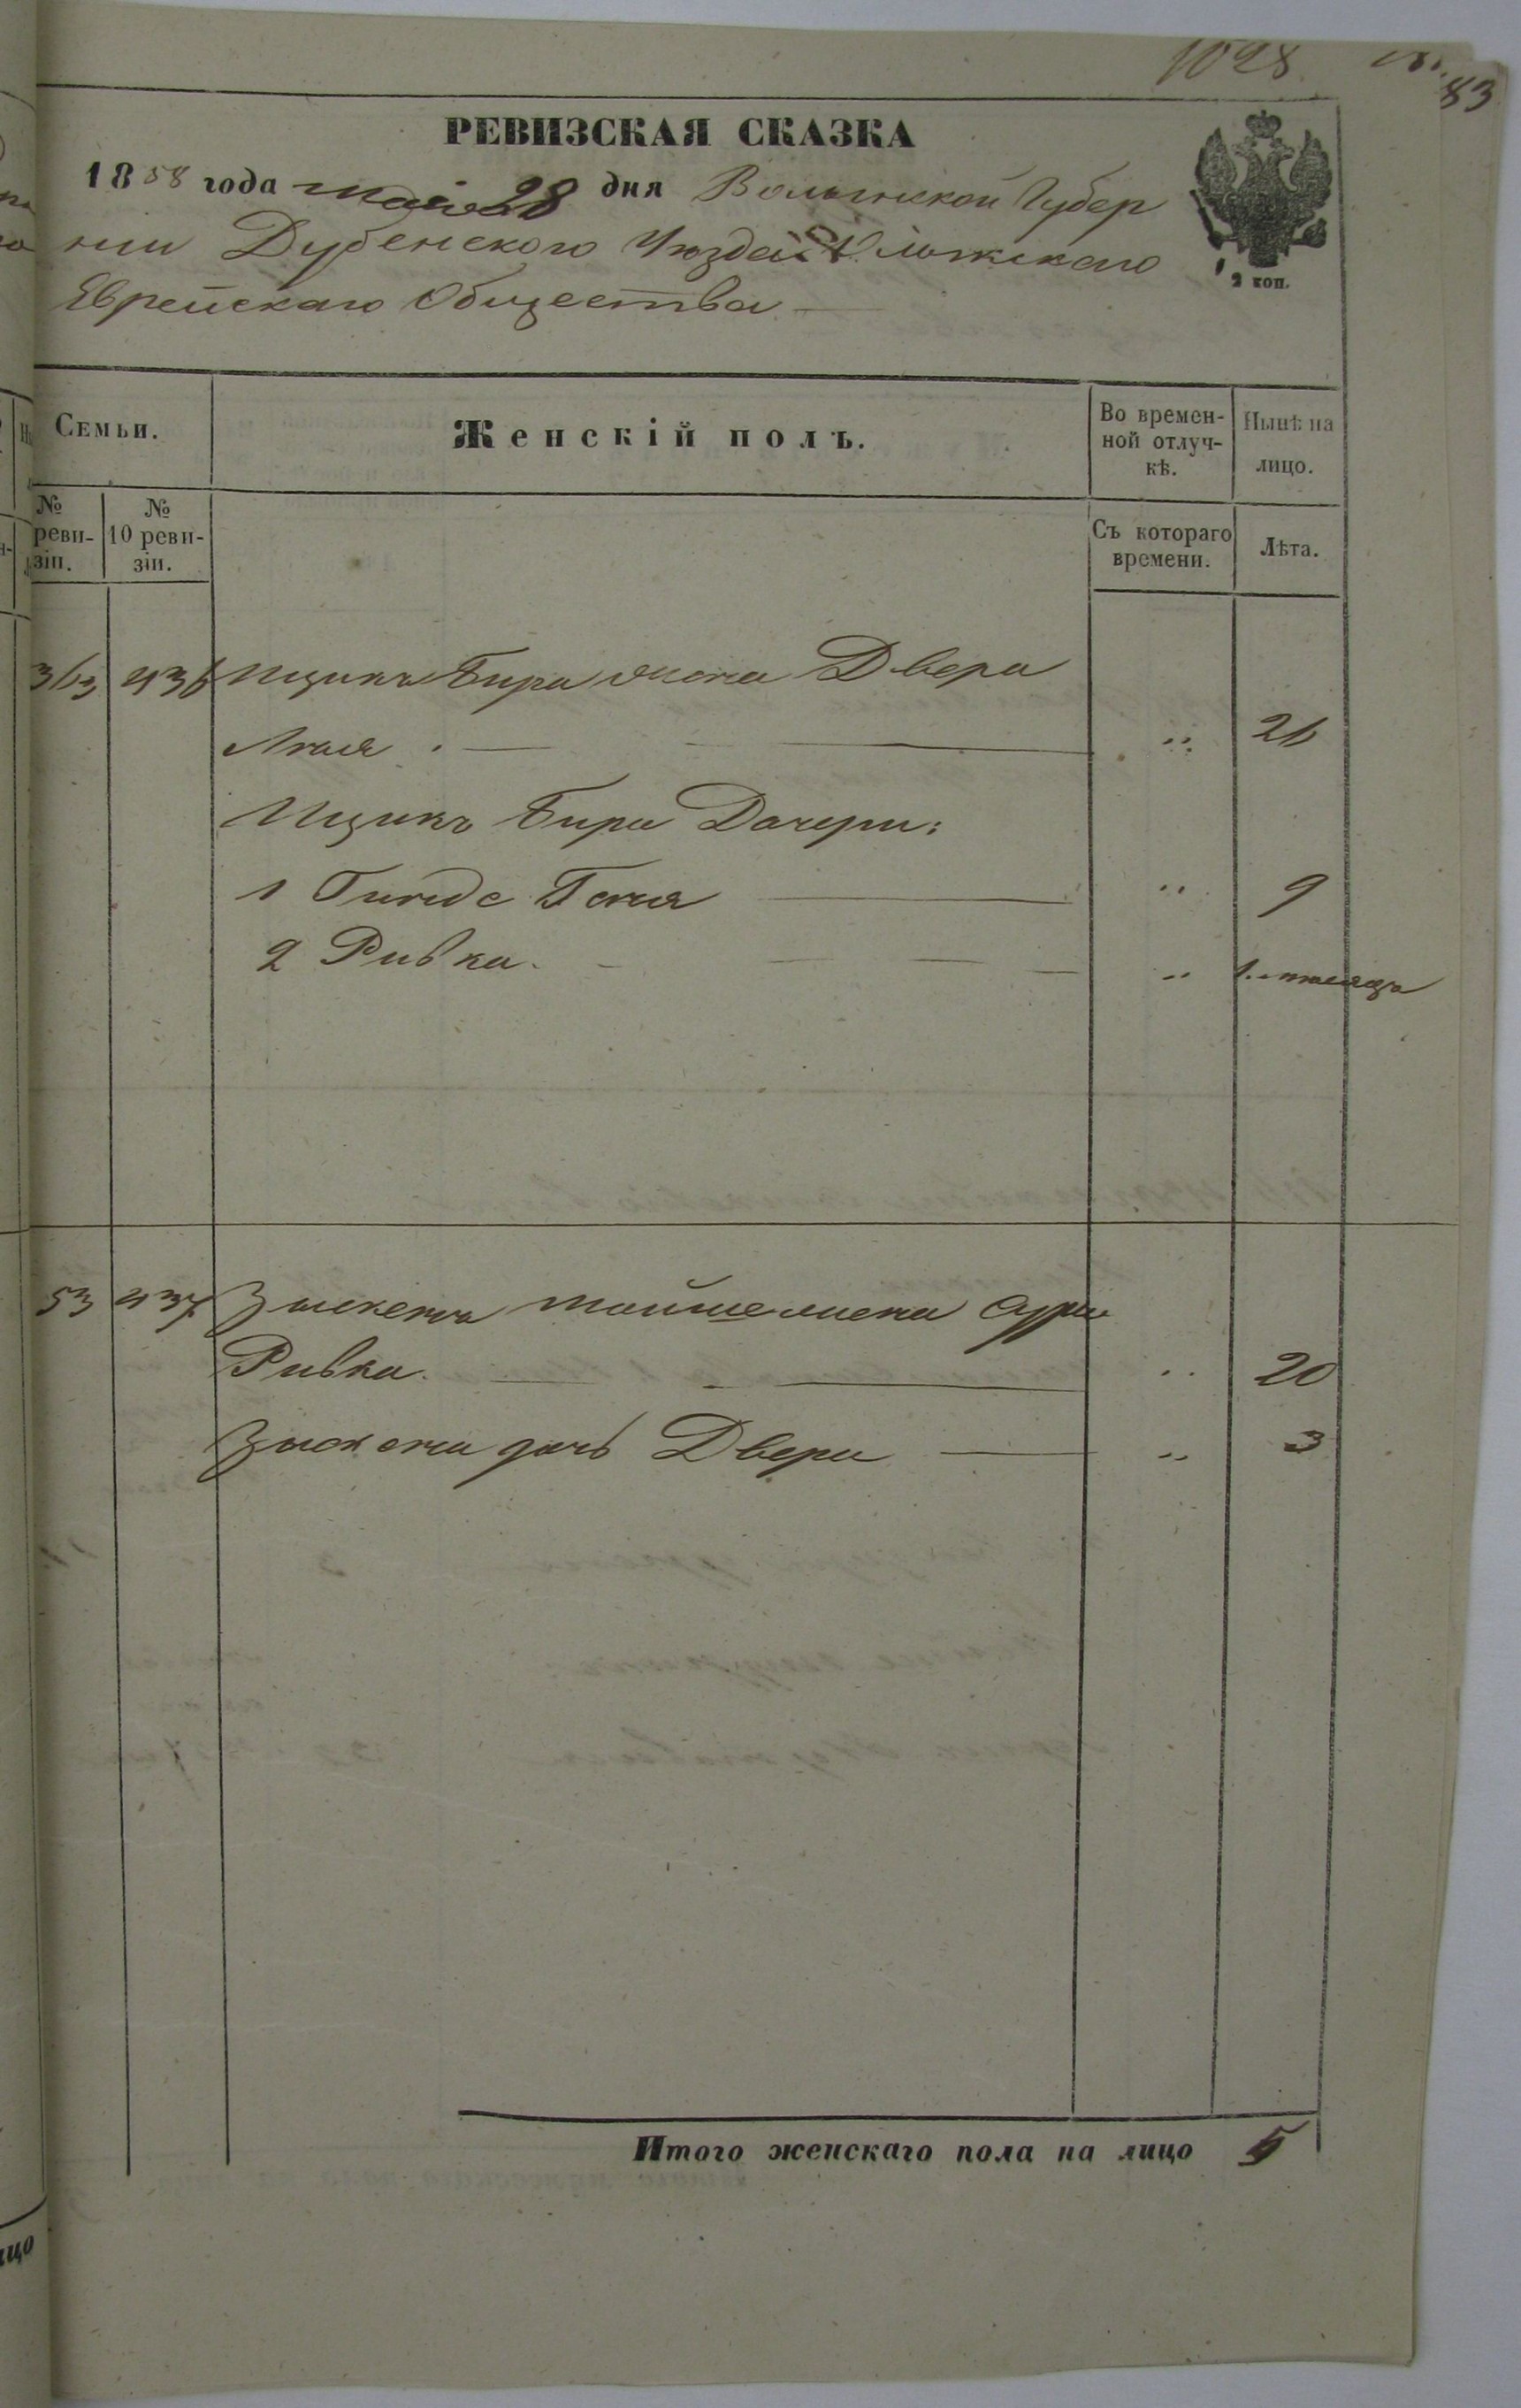 1028
83
РЕВИЗСКАЯ СКАЗКА
1858 года мая 28 дня Волынской Губер
нии Дубенского Уезда
Еврейскаго Общества
2 коп.
Семьи.
Женскій полъ.
Во времен-
ной отлуч-
кѣ.
Нынѣ на
лицо.
№
реви-
зіи.
№
10 реви-
зіи.
Съ котораго
времени.
Лѣта.
363 436 Ицика Бира жена Двера
Лея „ 26
Ицика Бира Дочери:
1 Гинде Геня „ 9
2 Ривка. „ 1. месяца
53 437 Мойше жена Сура
Ривка. „ 20
дочь Двера „ 3
Итого женскаго пола на лицо 5